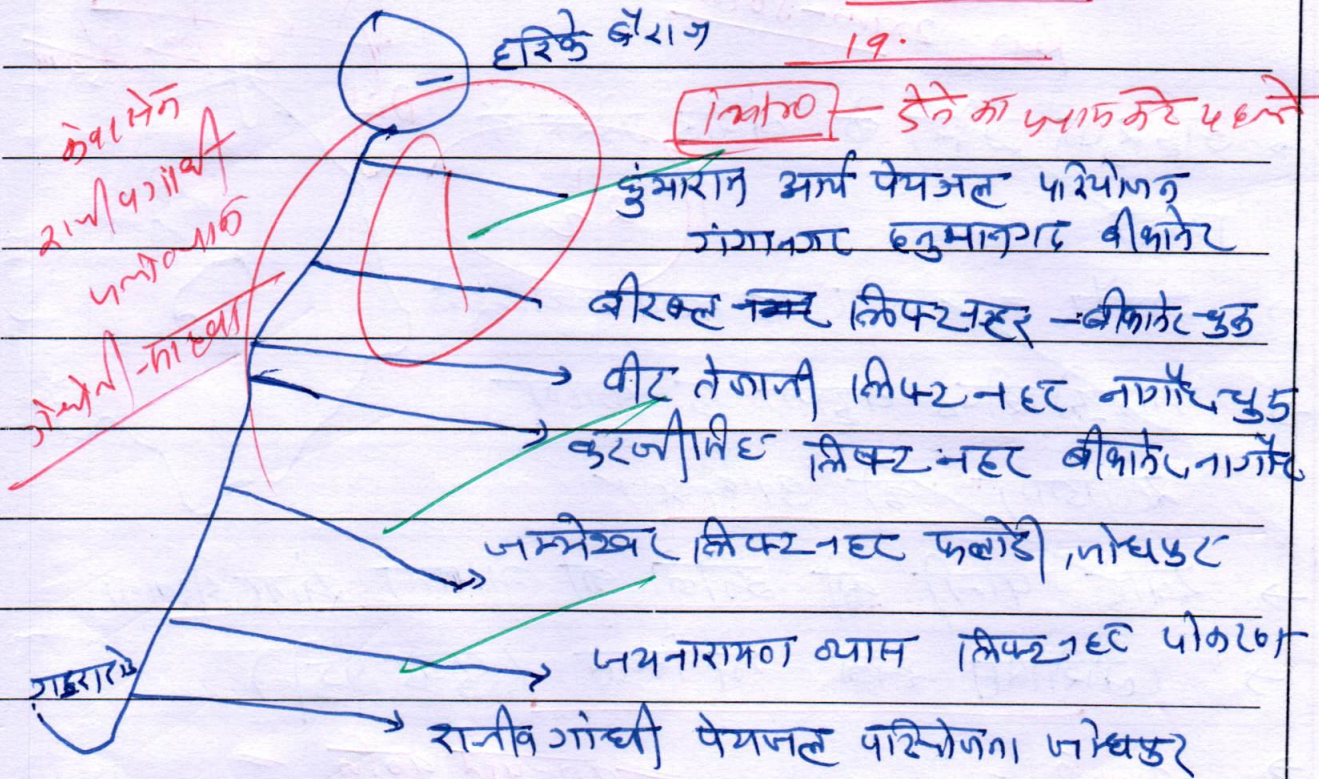 हरिके बैराज
19.
Intro - देने का प्रयास करे पहले
कुंभाराम आर्य पेयजल परियोजना
गंगानगर हनुमानगढ बीकानेर
बीरबल लिफ्ट नहर - बीकानेर चुरू
वीर तेजाजी लिफ्ट नहर नागौर चुरू
करणीसिंह लिफ्ट नहर बीकानेर, नागौर
जम्भेश्वर लिफ्ट नहर फलोदी, जोधपुर
जयनारायण व्यास लिफ्ट नहर पोकरण
गडरारोड
राजीव गांधी पेयजल परियोजना जोधपुर